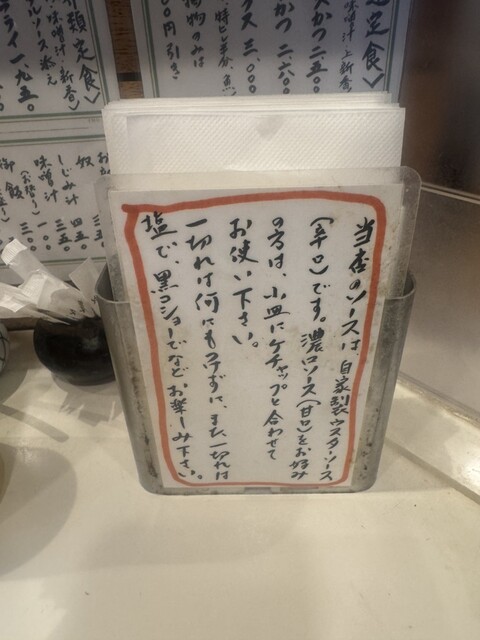 当店のソースは、自家製ウスターソース
(辛口)です。濃口ソース(甘口)をお好み
の方は、小皿にケチャップと合わせて
お使い下さい。
一切れは何にもつけずに、また一切れは
塩で、黒コショーでなどお楽しみ下さい。
定食〉
味噌汁上新香
スかつ二五〇
かつ二六〇〇
三、〇〇〇
円引き
類定食〉
味噌汁・新香
ルソース添え
フライ一九五〇
奴
しじみ汁
味噌汁
御飯
四五
三五〇
一〇〇
三〇〇